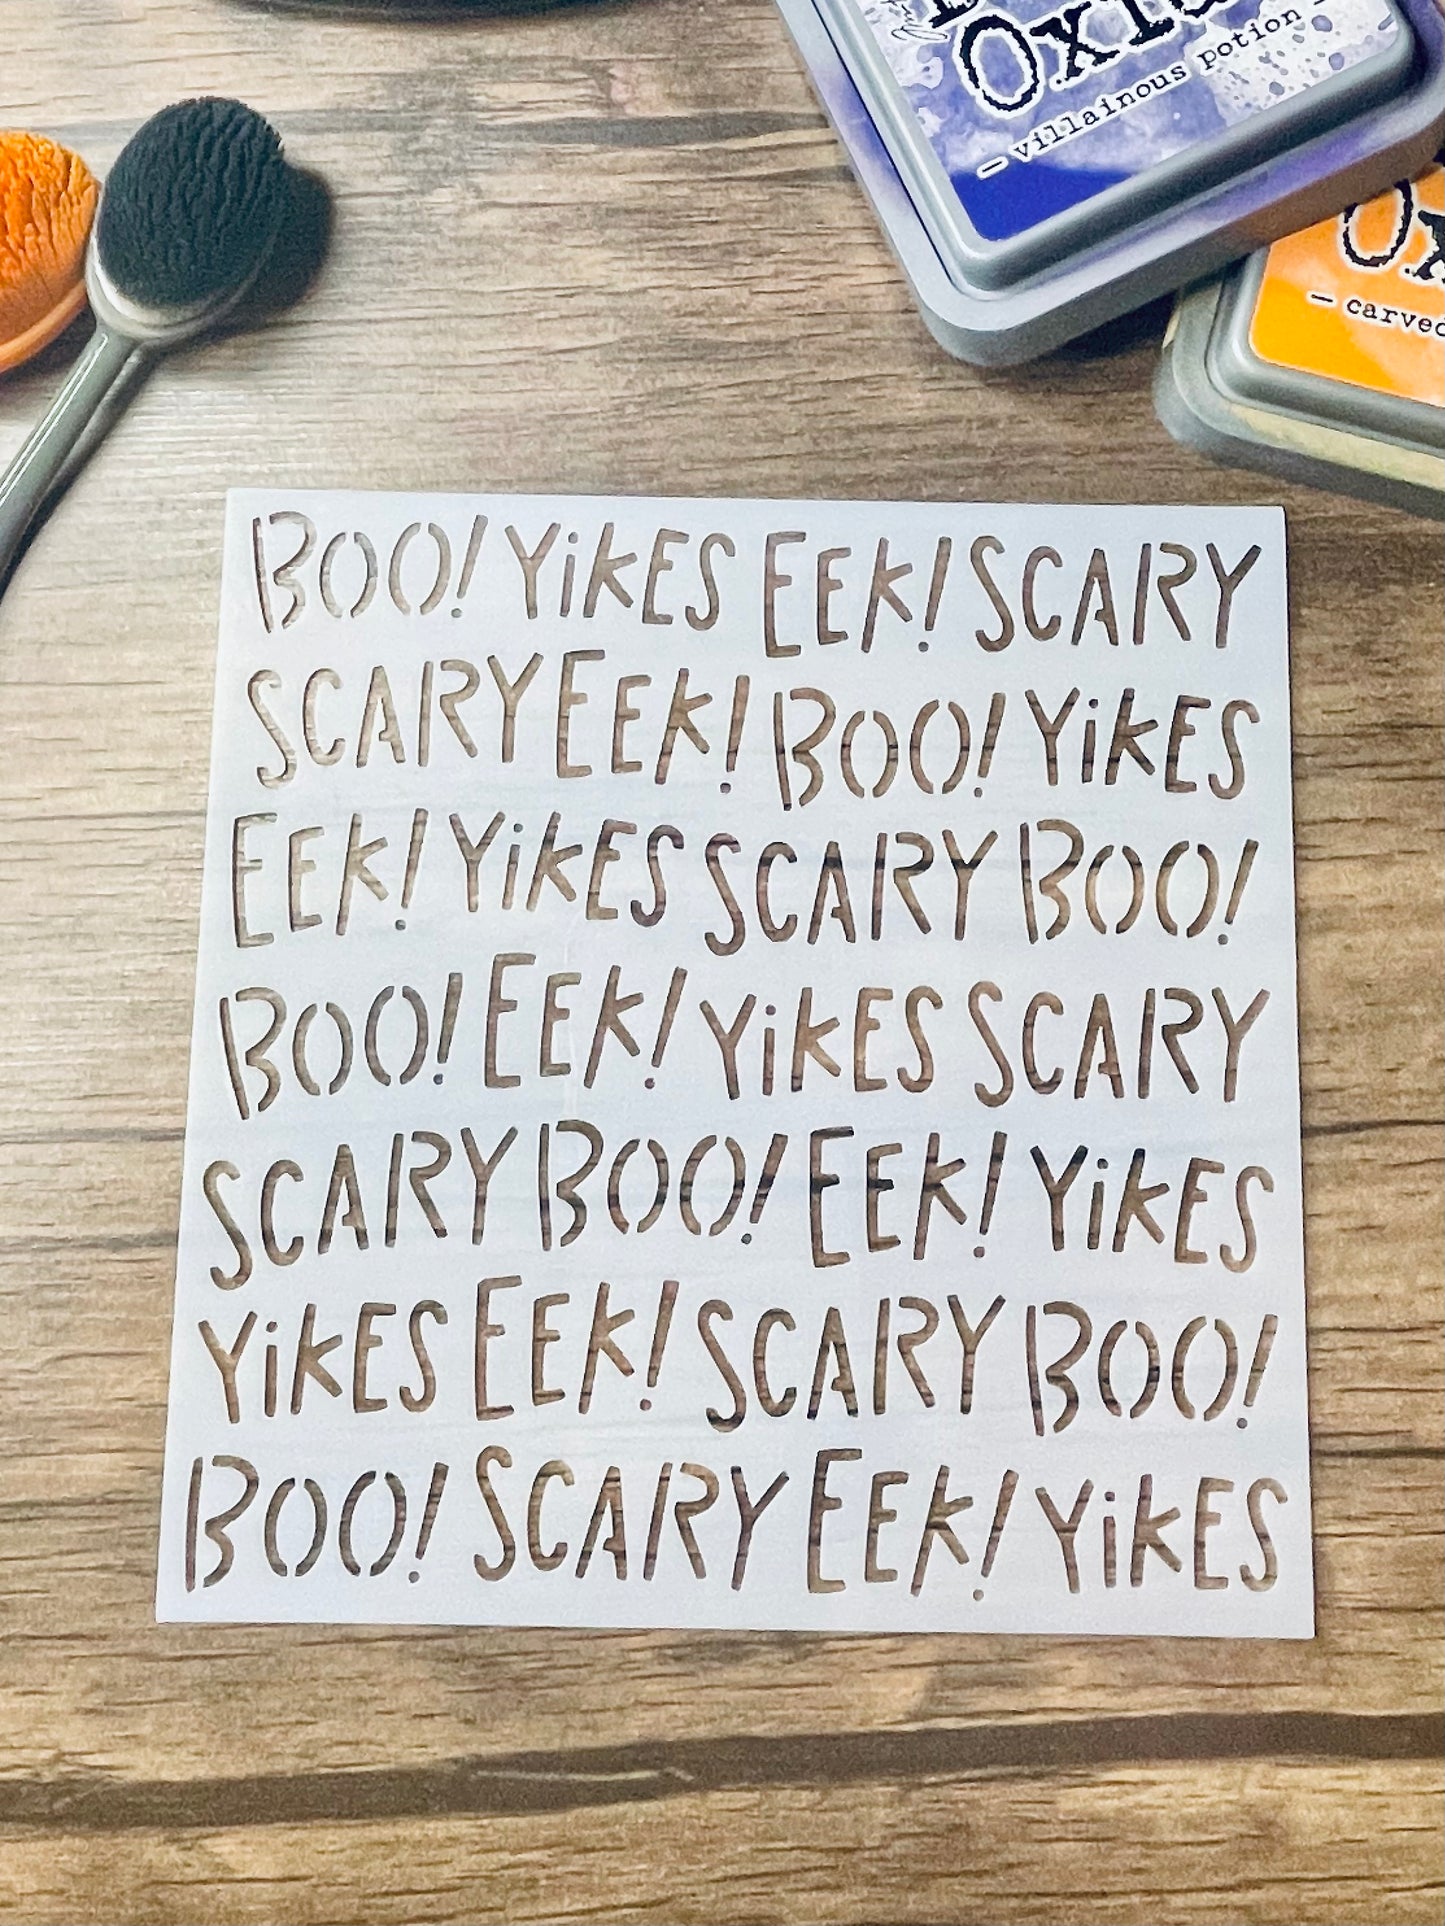 Oxi
— villainous potion —
Ox
— carved
BOO! YiKES EEK! SCARY
SCARY EEK! BOO! YiKES
EEK! YiKES SCARY BOO!
BOO! EEK! YiKES SCARY
SCARY BOO! EEK! YiKES
YiKES EEK! SCARY BOO!
BOO! SCARY EEK! YiKES